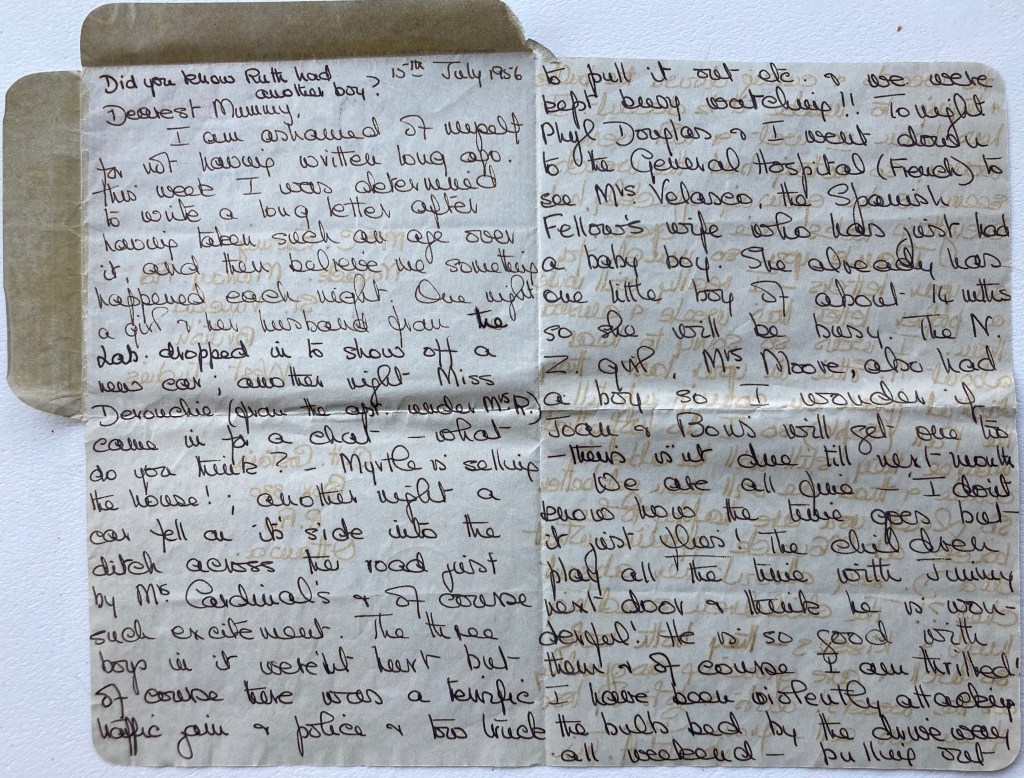 Did you know Ruth had
another boy?
15th July 1956
Dearest Mummy,
I am ashamed of myself
for not having written long ago.
This week I was determined
to write a long letter after
having taken such an age over
it, and then believe me something
happened each night. One night
a girl & her husband from the
Lab. dropped in to show off a
new car; another night Miss
Derouchie (from the apt. under Mrs R.)
came in for a chat – what
do you think? – Myrtle is selling
the house!; another night a
car fell on it's side into the
ditch across the road just
by Mrs Cardinal's & of course
such excitement. The three
boys in it were'nt hurt but
of course there was a terrific
traffic jam & police & tow truck
to pull it out etc. & we were
kept busy watching!! Tonight
Phyl Douglas & I went down
to the General Hospital (French) to
see Mrs Velasco, the Spanish
Fellow's wife who has just had
a baby boy. She already has
one little boy of about 14 mths
so she will be busy. The N.
Z girl, Mrs Moore, also had
a boy so I wonder if
Joan & Boris will get one too
– theirs is'nt due till next month
We are all fine – I don't
know how the time goes but
it just flies! The children
play all the time with Jimmy
next door & think he is won-
derful! He is so good with
them & of course I am thrilled!
I have been violently attacking
the bulb bed by the driveway
all weekend – pulling out